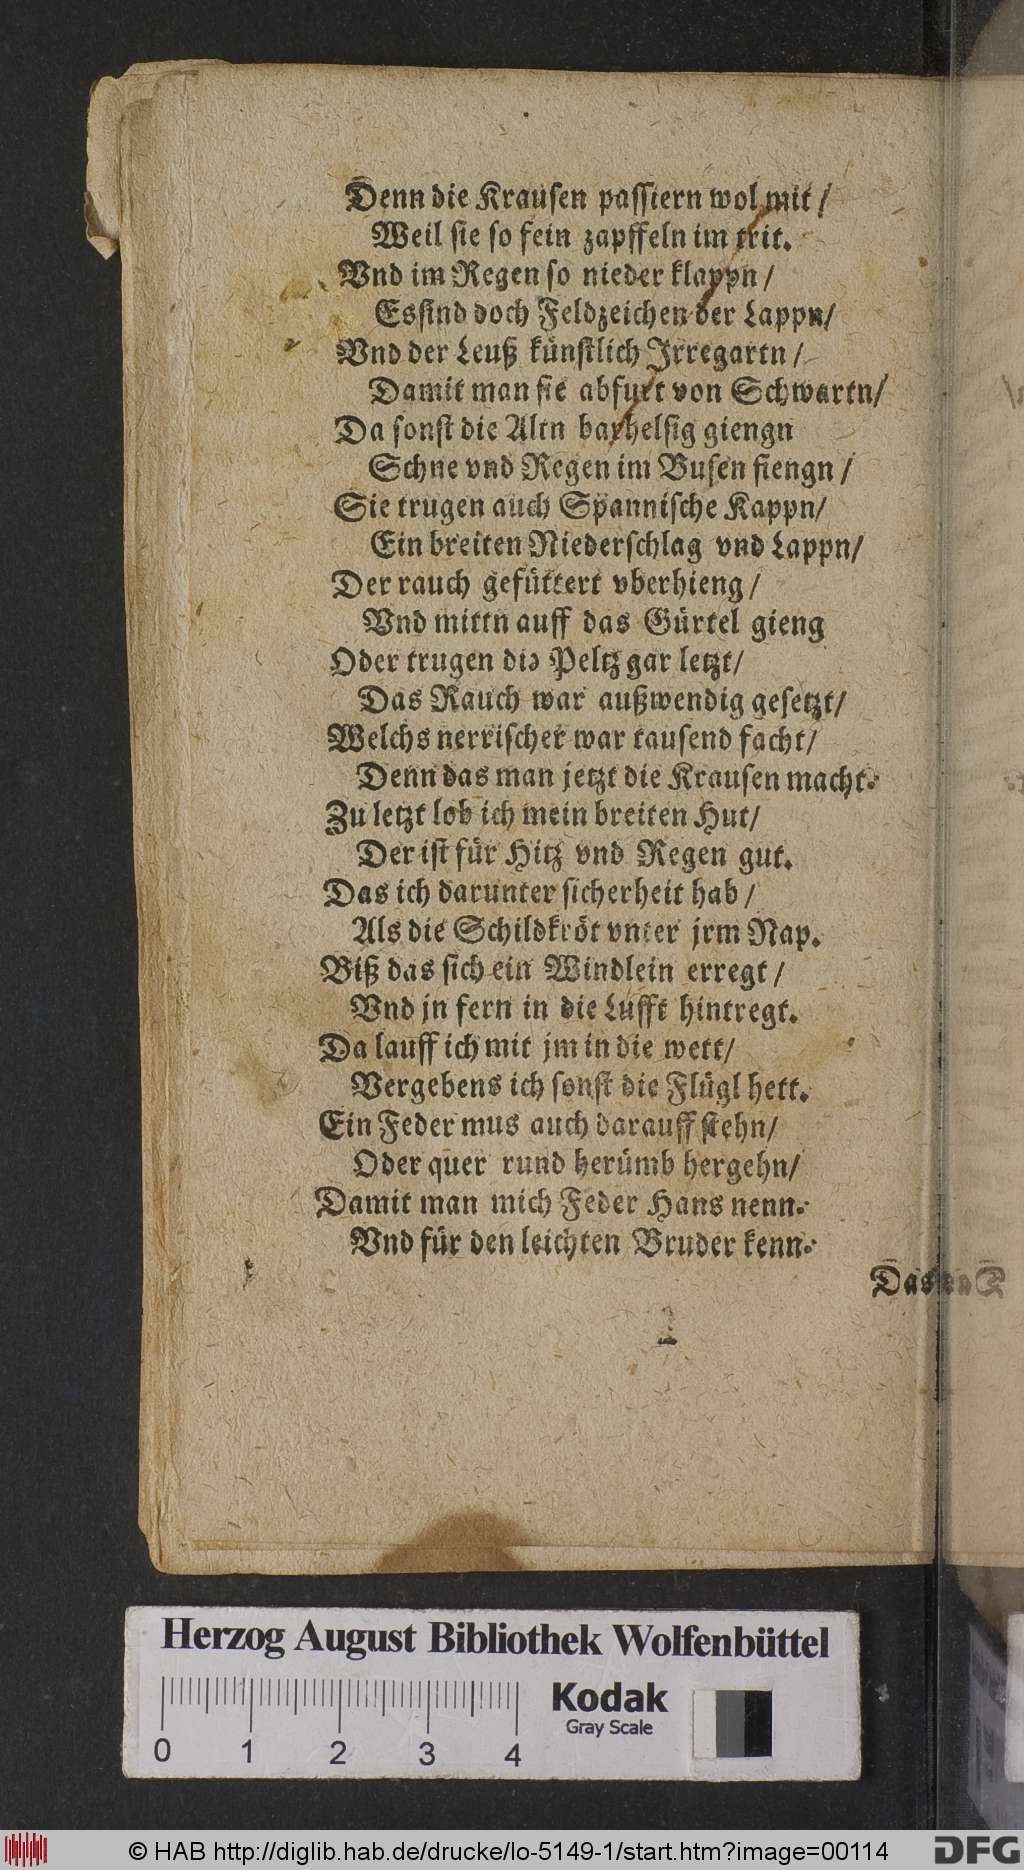 Denn die Krausen passiern wol mit /
Weil sie so fein zapffeln im trit.
Vnd im Regen so nieder klappn /
Essind doch Feldzeichen der Lappn /
Vnd der Leuß künstlich Irregartn /
Damit man sie abfurt von Schwartn /
Da sonst die Altn barhelsig giengn
Schne vnd Regen im Busen fiengn /
Sie trugen auch Spannische Kappn /
Ein breiten Niederschlag vnd Lappn /
Der rauch gefüttert vberhieng /
Vnd mittn auff das Gürtel gieng
Oder trugen die Peltz gar letzt /
Das Rauch war außwendig gesetzt /
Welchs nerrischer war tausend facht /
Denn das man jetzt die Krausen macht.
Zu letzt lob ich mein breiten Hut /
Der ist für Hitz vnd Regen gut.
Das ich darunter sicherheit hab /
Als die Schildkröt vnter jrm Nap.
Biß das sich ein Windlein erregt /
Vnd jn fern in die Lufft hintregt.
Da lauff ich mit jm in die wett /
Vergebens ich sonst die Flügl hett.
Ein Feder mus auch darauff stehn /
Oder quer rund herümb hergehn /
Damit man mich Feder Hans nenn.
Vnd für den leichten Bruder kenn.
Das
Herzog August Bibliothek Wolfenbüttel
Kodak
Gray Scale
0 1 2 3 4
© HAB http://diglib.hab.de/drucke/lo-5149-1/start.htm?image=00114
DFG